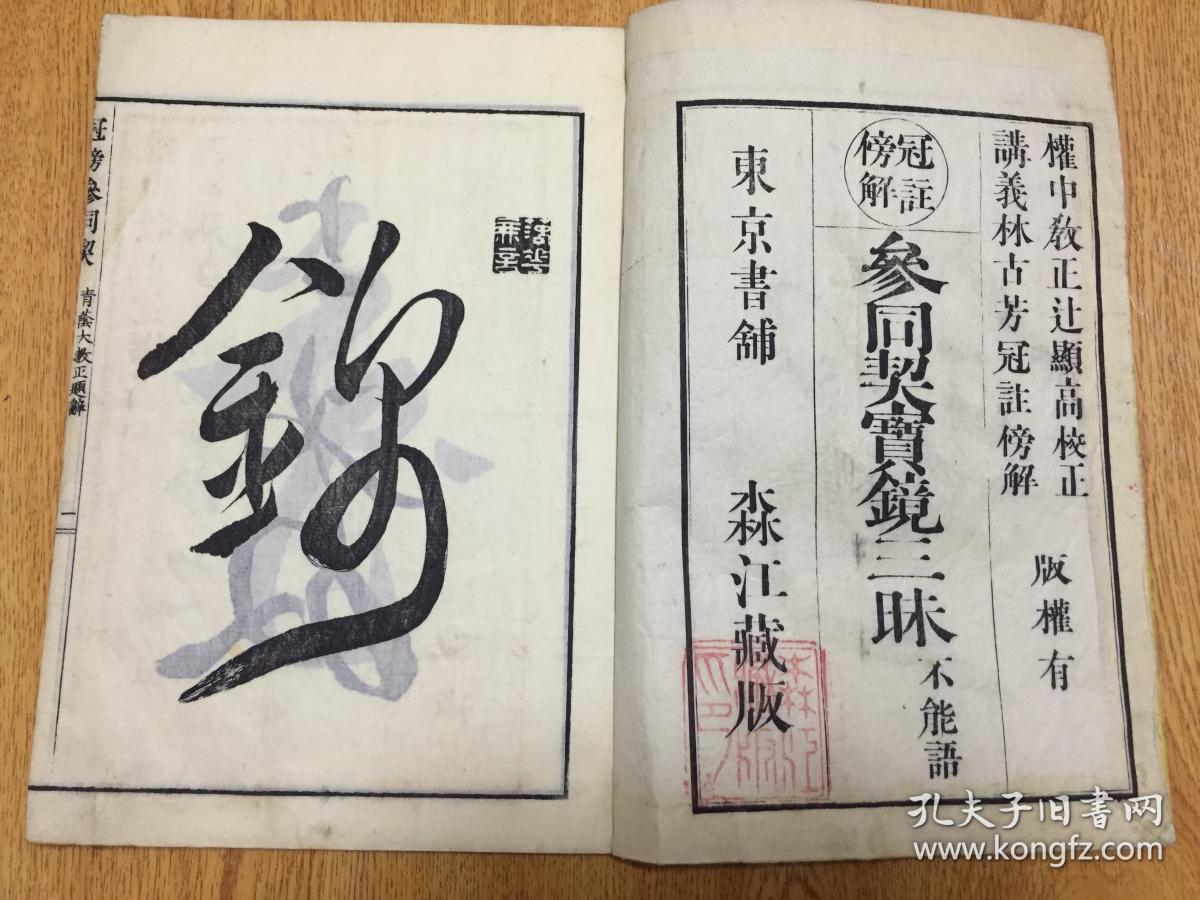 權中敎正辻顯高校正
講義林古芳冠註傍解
版權有
冠註
傍解
參同契寶鏡三昧
不能語
東京書舖
森江藏版
冠傍參同契
青蔭大敎正題辭
一
孔夫子旧书网
www.kongfz.com